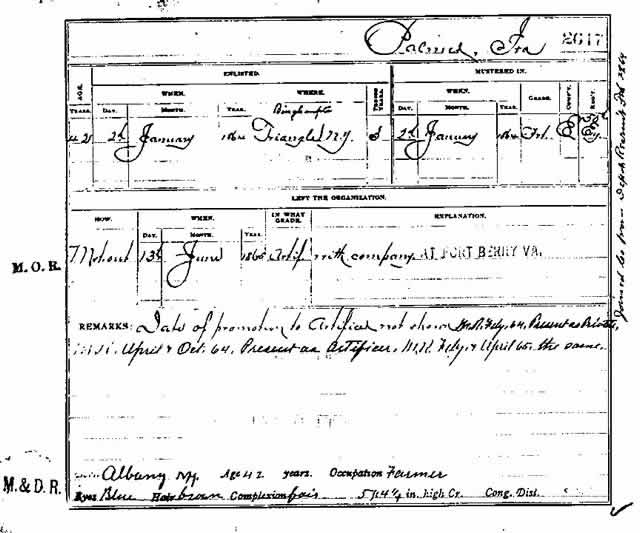 Palmer, Ira 2617
ENLISTED. MUSTERED IN.
AGE. WHEN. WHERE. PERIOD YEARS. WHEN. GRADE. COMP'Y. REG'T.
YEARS. DAY. MONTH. YEAR. Binghampton DAY. MONTH. YEAR.
42 January 1864 Triangle N.Y. 3 January 1864
LEFT THE ORGANIZATION.
HOW. WHEN. IN WHAT GRADE. EXPLANATION.
DAY. MONTH. YEAR.
M.O.R. M.o.out 13th June 1865 Artif with company AT FORT BERRY VA.
REMARKS: Date of promotion to Artificer not shown Feby. 64, Present as Private,
April & Oct. 64, Present as Artificer. Feby. & April 65 the same.
M. & D. R. Albany NY. Age 42 years. Occupation Farmer
Eyes Blue Hair brown Complexion fair 5 ft 4¼ in. high Cr. Cong. Dist.
Joined Co. from Depot Feb 1864